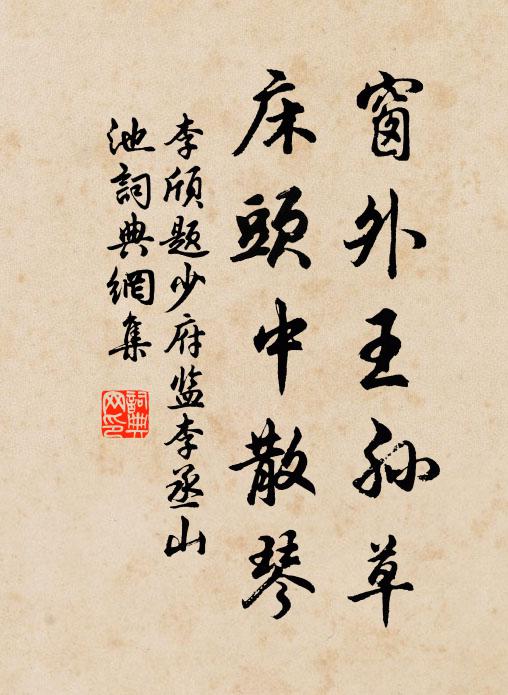 窗外王孙草
床頭中散琴
李頎题少府监李丞山
池詞典網集
詞典网印